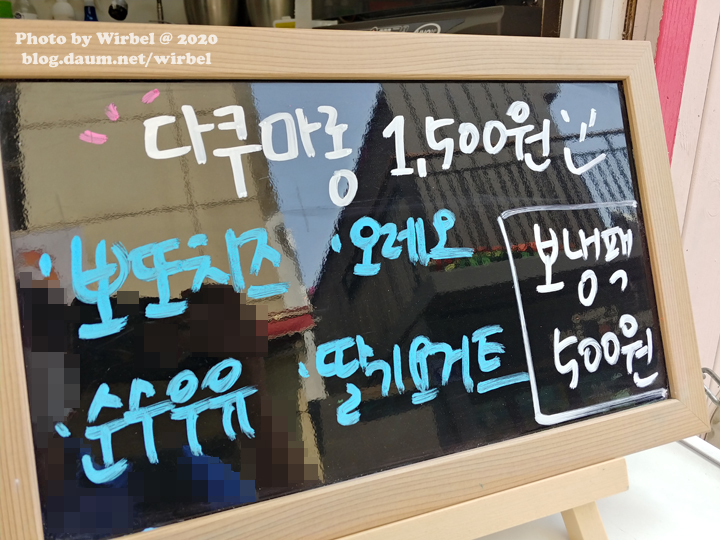 Photo by Wirbel @ 2020
blog.daum.net/wirbel
다쿠마롱 1,500원
· 뽀또치즈
· 오레오
· 순수우유
· 딸기요거트
보냉팩
500원